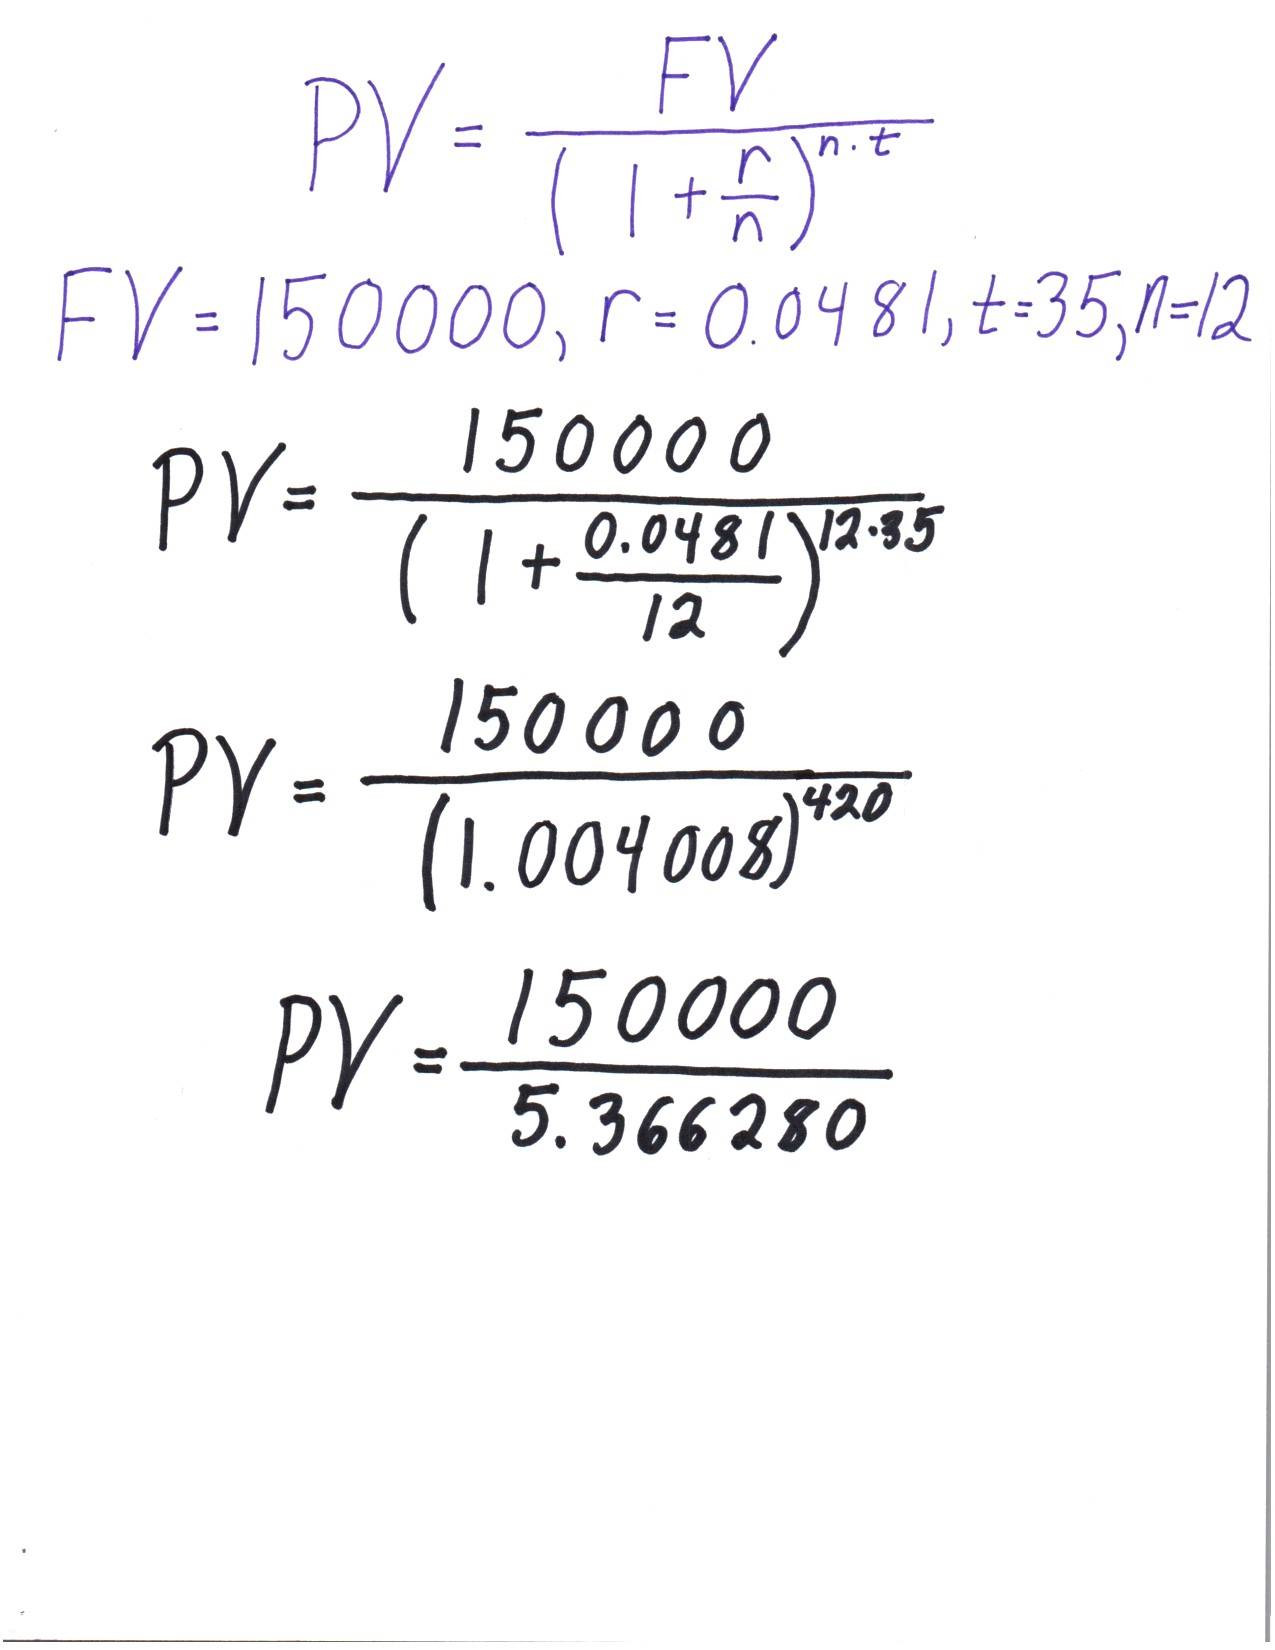 PV = FV / (1 + r/n)^(n·t)
FV = 150000, r = 0.0481, t=35, n=12
PV = 150000 / (1 + 0.0481/12)^(12·35)
PV = 150000 / (1.004008)^420
PV = 150000 / 5.366280